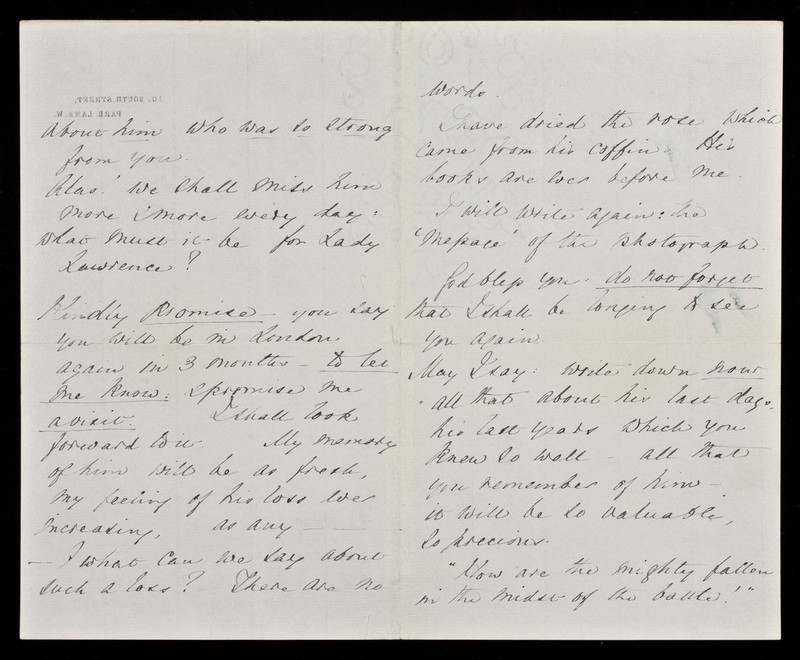 10. SOUTH STREET,
PARK LANE. W.
about him who was so strong
from you.
Alas! we shall miss him
more & more every day:
what must it be for Lady
Lawrence?
Kindly promise - you say
you will be in London
again in 3 months - to let
me know: & promise me
a visit. I shall look
forward to it. My memory
of him will be as fresh,
my feeling of his loss ever
increasing, as any —
— & what can we say about
such a loss? There are no
words.
I have dried the rose which
came from his coffin. His
books are ever before me.
I will write again: the
'message' of the photograph.
God bless you. do not forget
that I shall be longing to see
you again.
May I say: write down now
all that about his last days,
his last years which you
knew so well - all that
you remember of him -
it will be so valuable,
so precious.
"How are the mighty fallen
in the midst of the battle!"